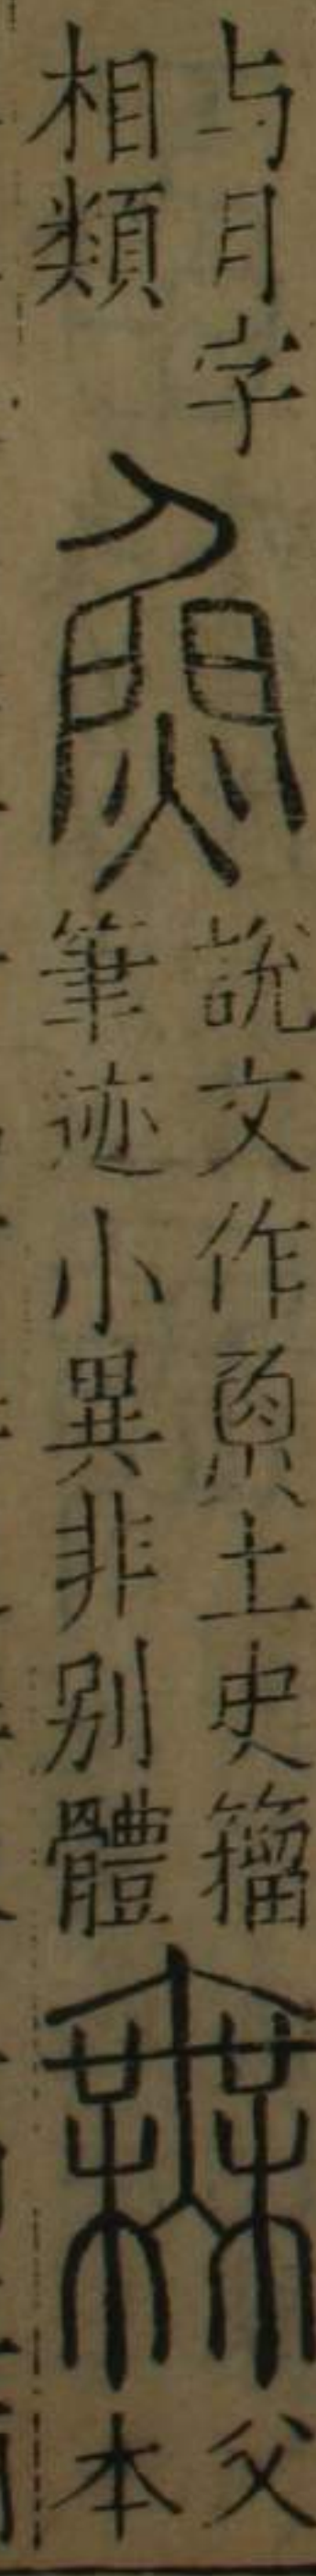 与月字
相類
說文作土史籀
筆迹小異非別體
父
本